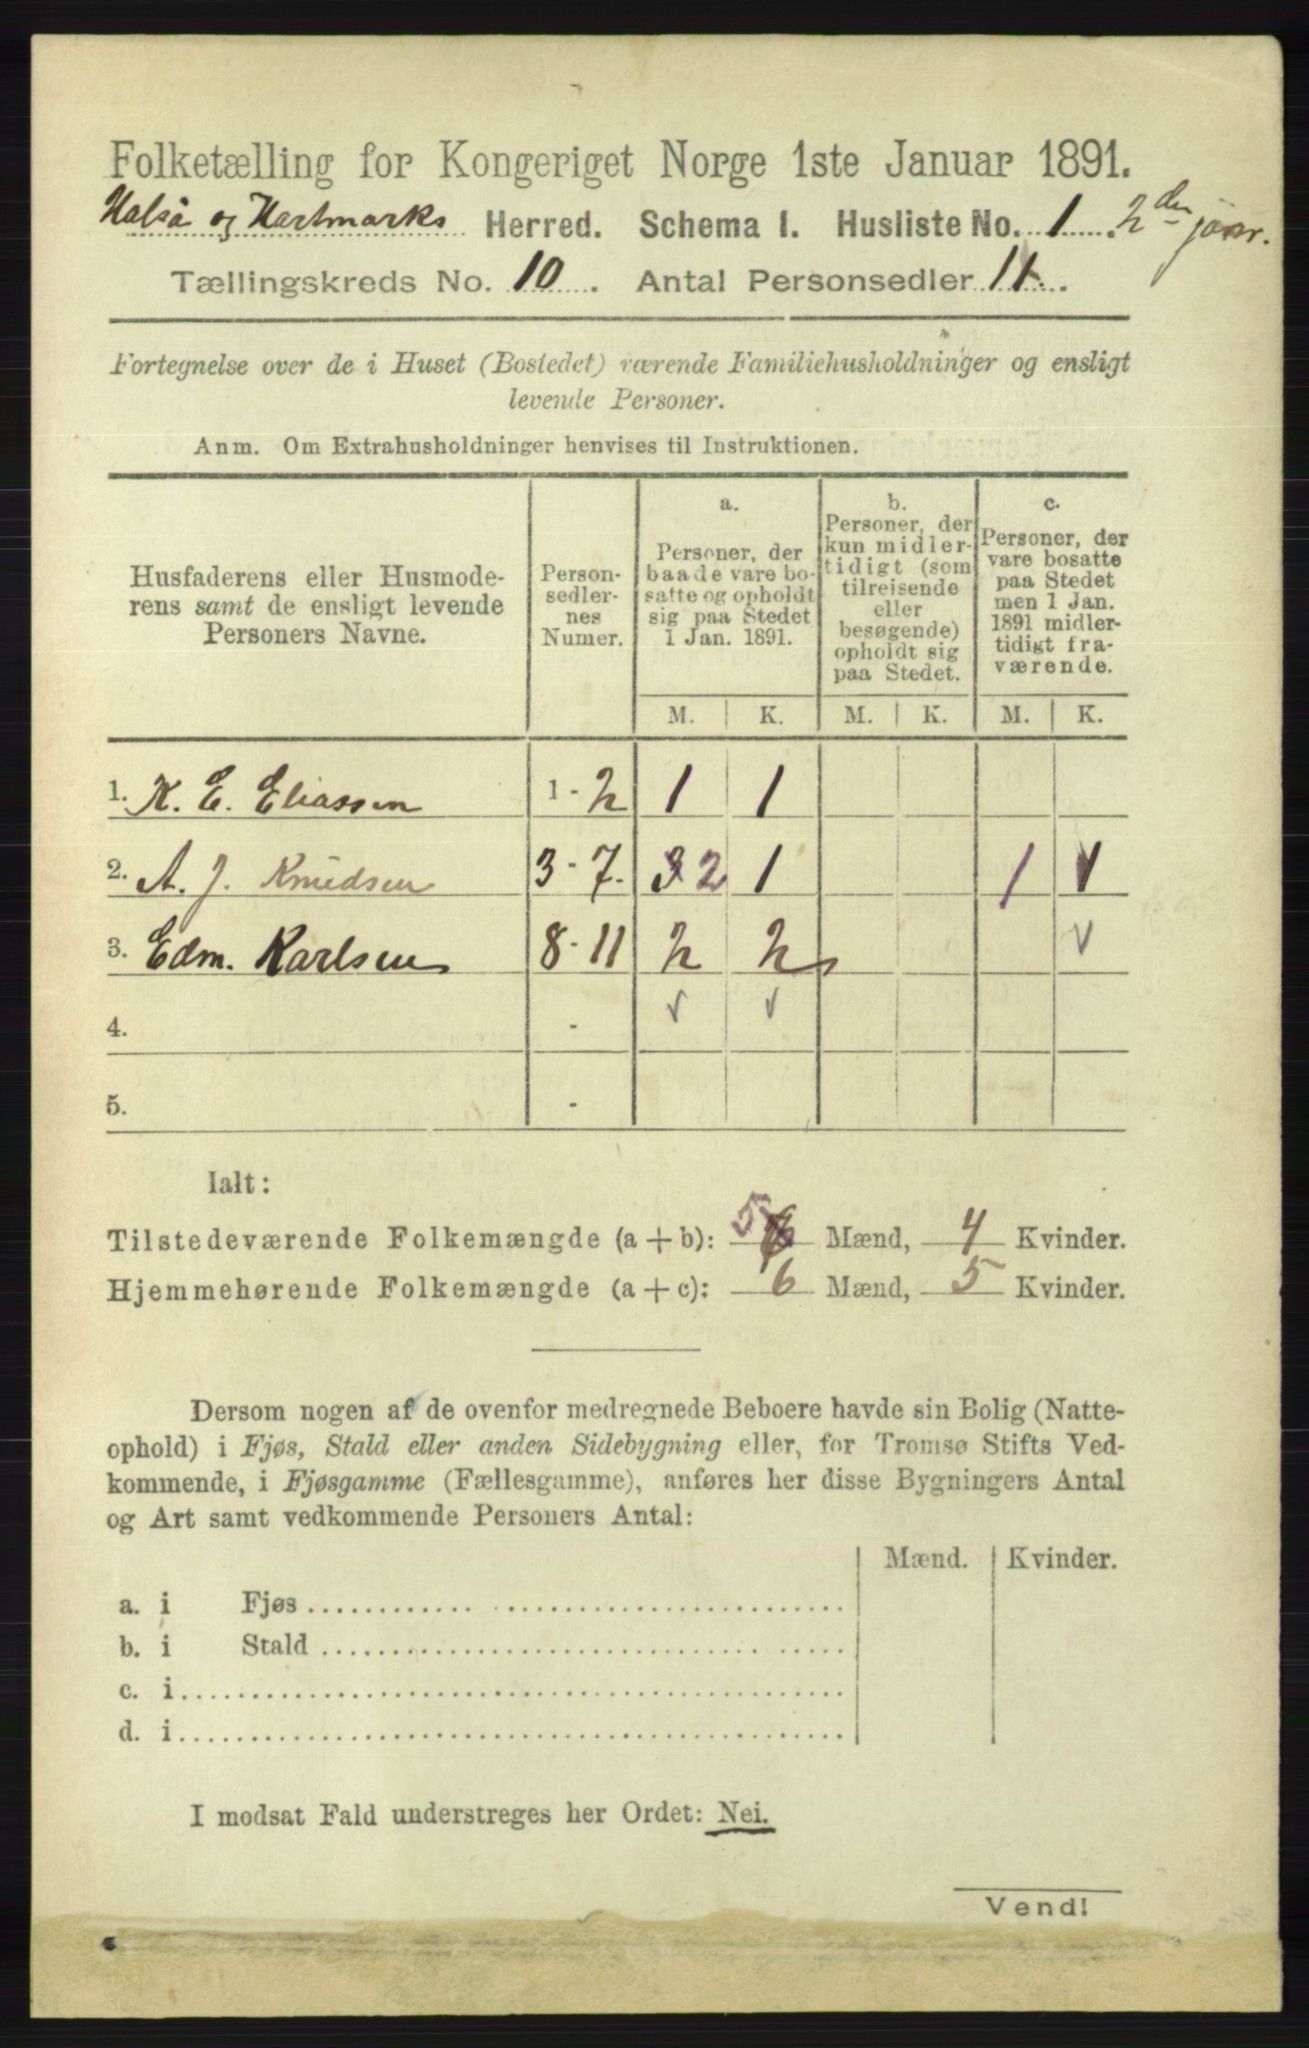 Folketælling for Kongeriget Norge 1ste Januar 1891.
Halså og Hartmarks Herred. Schema I. Husliste No. 1. 2den janr.
Tællingskreds No. 10. Antal Personsedler 11.
Fortegnelse over de i Huset (Bostedet) værende Familiehusholdninger og ensligt
levende Personer.
Anm. Om Extrahusholdninger henvises til Instruktionen.
Husfaderens eller Husmode-
rens samt de ensligt levende
Personers Navne.
Person-
sedler-
nes
Numer.
a.
Personer, der
baade vare bo-
satte og opholdt
sig paa Stedet
1 Jan. 1891.
b.
Personer, der
kun midler-
tidigt (som
tilreisende
eller
besøgende)
opholdt sig
paa Stedet.
c.
Personer, der
vare bosatte
paa Stedet
men 1 Jan.
1891 midler-
tidigt fra-
værende.
M. K. M. K. M. K.
1. K. E. Eliassen 1 - 2 1 1
2. A. J. Knudsen 3 - 7. 3 2 1 1 1
3. Edm. Karlsen 8 - 11 2 2
4. -
5. -
Ialt:
Tilstedeværende Folkemængde (a + b): 5 6 Mænd, 4 Kvinder.
Hjemmehørende Folkemængde (a + c): 6 Mænd, 5 Kvinder.
Dersom nogen af de ovenfor medregnede Beboere havde sin Bolig (Natte-
ophold) i Fjøs, Stald eller anden Sidebygning eller, for Tromsø Stifts Ved-
kommende, i Fjøsgamme (Fællesgamme), anføres her disse Bygningers Antal
og Art samt vedkommende Personers Antal:
Mænd. Kvinder.
a. i Fjøs
b. i Stald
c. i
d. i
I modsat Fald understreges her Ordet: Nei.
Vend!